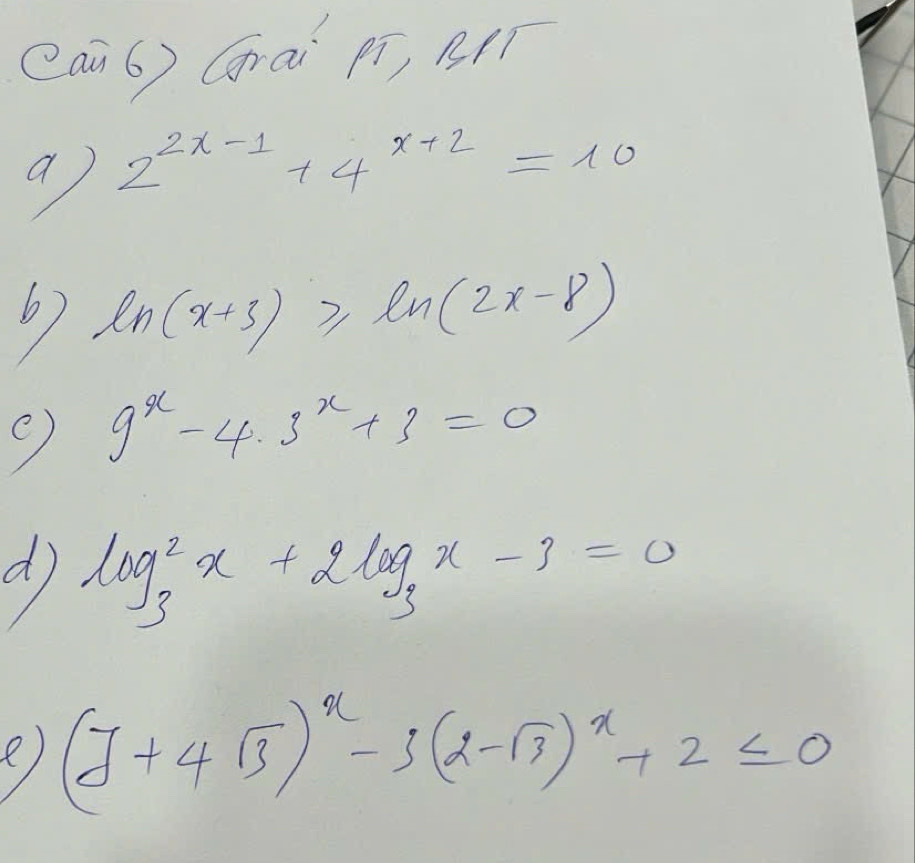 Câu 6) Giải PT, BPT
a) 2^{2x-1} + 4^{x+2} = 10
b) ln(x+3) ⩾ ln(2x-8)
c) 9^x - 4.3^x + 3 = 0
d) log_3^2 x + 2log_3 x - 3 = 0
e) (7+4√3)^x - 3(2-√3)^x + 2 ≤ 0